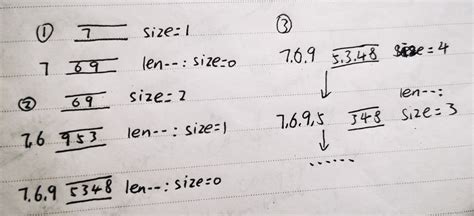 ① 7 size=1
7 69 len--: size=0
② 69 size=2
7,6 953 len--: size=1
7.6.9 5348 len--: size=0
③
7.6.9 5.3.48 size=4
↓ len--:
7,6.9,5 348 size=3
↓
......